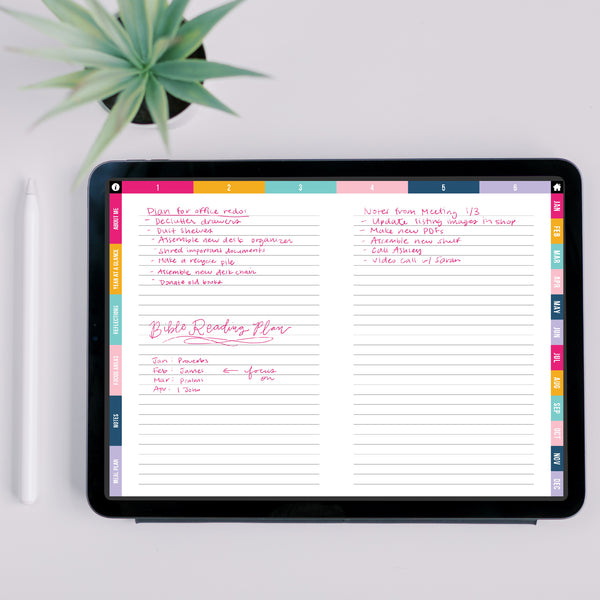 1 2 3 4 5 6
ABOUT ME
YEAR AT A GLANCE
REFLECTIONS
FOCUS AREAS
NOTES
MEAL PLAN
Plan for office redo:
- Declutter drawers
- Dust shelves
- Assemble new desk organizer
- Shred important documents
- Make a recycle file
- Assemble new desk chair
- Donate old books
Bible Reading Plan
Jan: Proverbs
Feb: James ← focus
Mar: Psalms on
Apr: 1 John
Notes from Meeting 1/3
- Update listing images in shop
- Make new PDFs
- Assemble new shelf
- Call Ashley
- Video call w/ Sarah
JAN
FEB
MAR
APR
MAY
JUN
JUL
AUG
SEP
OCT
NOV
DEC